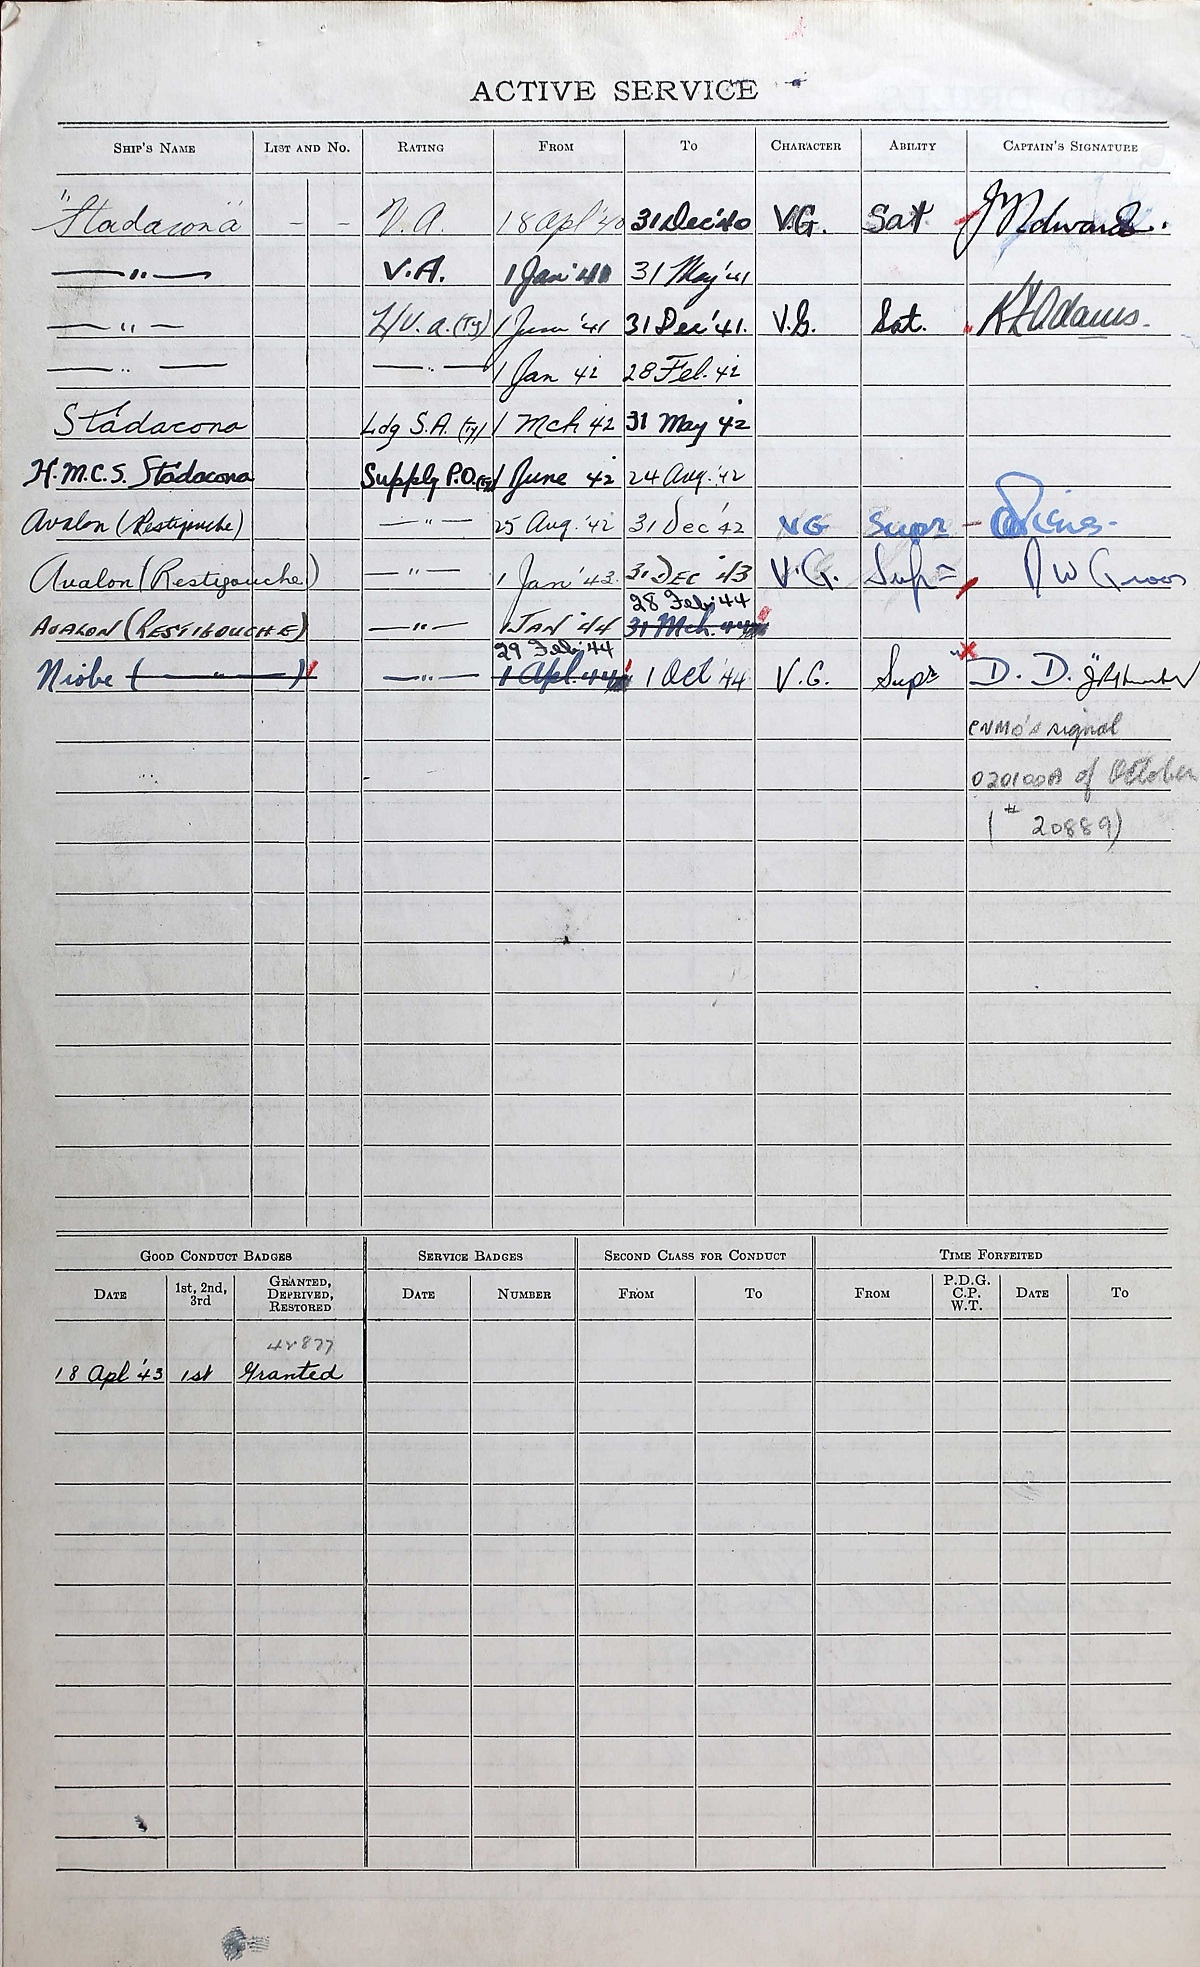 ACTIVE SERVICE
SHIP'S NAME LIST AND NO. RATING FROM TO CHARACTER ABILITY CAPTAIN'S SIGNATURE
"Stadacona" - - V.A. 18 Apl '40 31 Dec '40 V.G. Sat
— " — V.A. 1 Jan '41 31 May '41
— " — L/V.A. (Ty) 1 June '41 31 Dec '41. V.G. Sat. Adams.
— " — — " — 1 Jan 42 28 Feb. 42
Stadacona Ldg S.A. (Ty) 1 Mch 42 31 May 42
H.M.C.S. Stadacona Supply P.O. (Ty) 1 June 42 24 Aug. '42
Avalon (Restigouche) — " — 25 Aug. '42 31 Dec '42 VG Supr
Avalon (Restigouche) — " — 1 Jan '43 31 DEC '43 V.G. Supr
28 Feb '44
AVALON (RESTIGOUCHE) — " — 1 JAN '44 31 Mch. 44
29 Feb '44
Niobe ( — " — ) — " — 1 Apl. 44 1 Oct '44 V.G. Supr "D. D."
CNMO's signal
020100A of October
(# 20889)
GOOD CONDUCT BADGES SERVICE BADGES SECOND CLASS FOR CONDUCT TIME FORFEITED
DATE 1st, 2nd, 3rd GRANTED, DEPRIVED, RESTORED DATE NUMBER FROM TO FROM P.D.G. C.P. W.T. DATE TO
42877
18 Apl '43 1st Granted